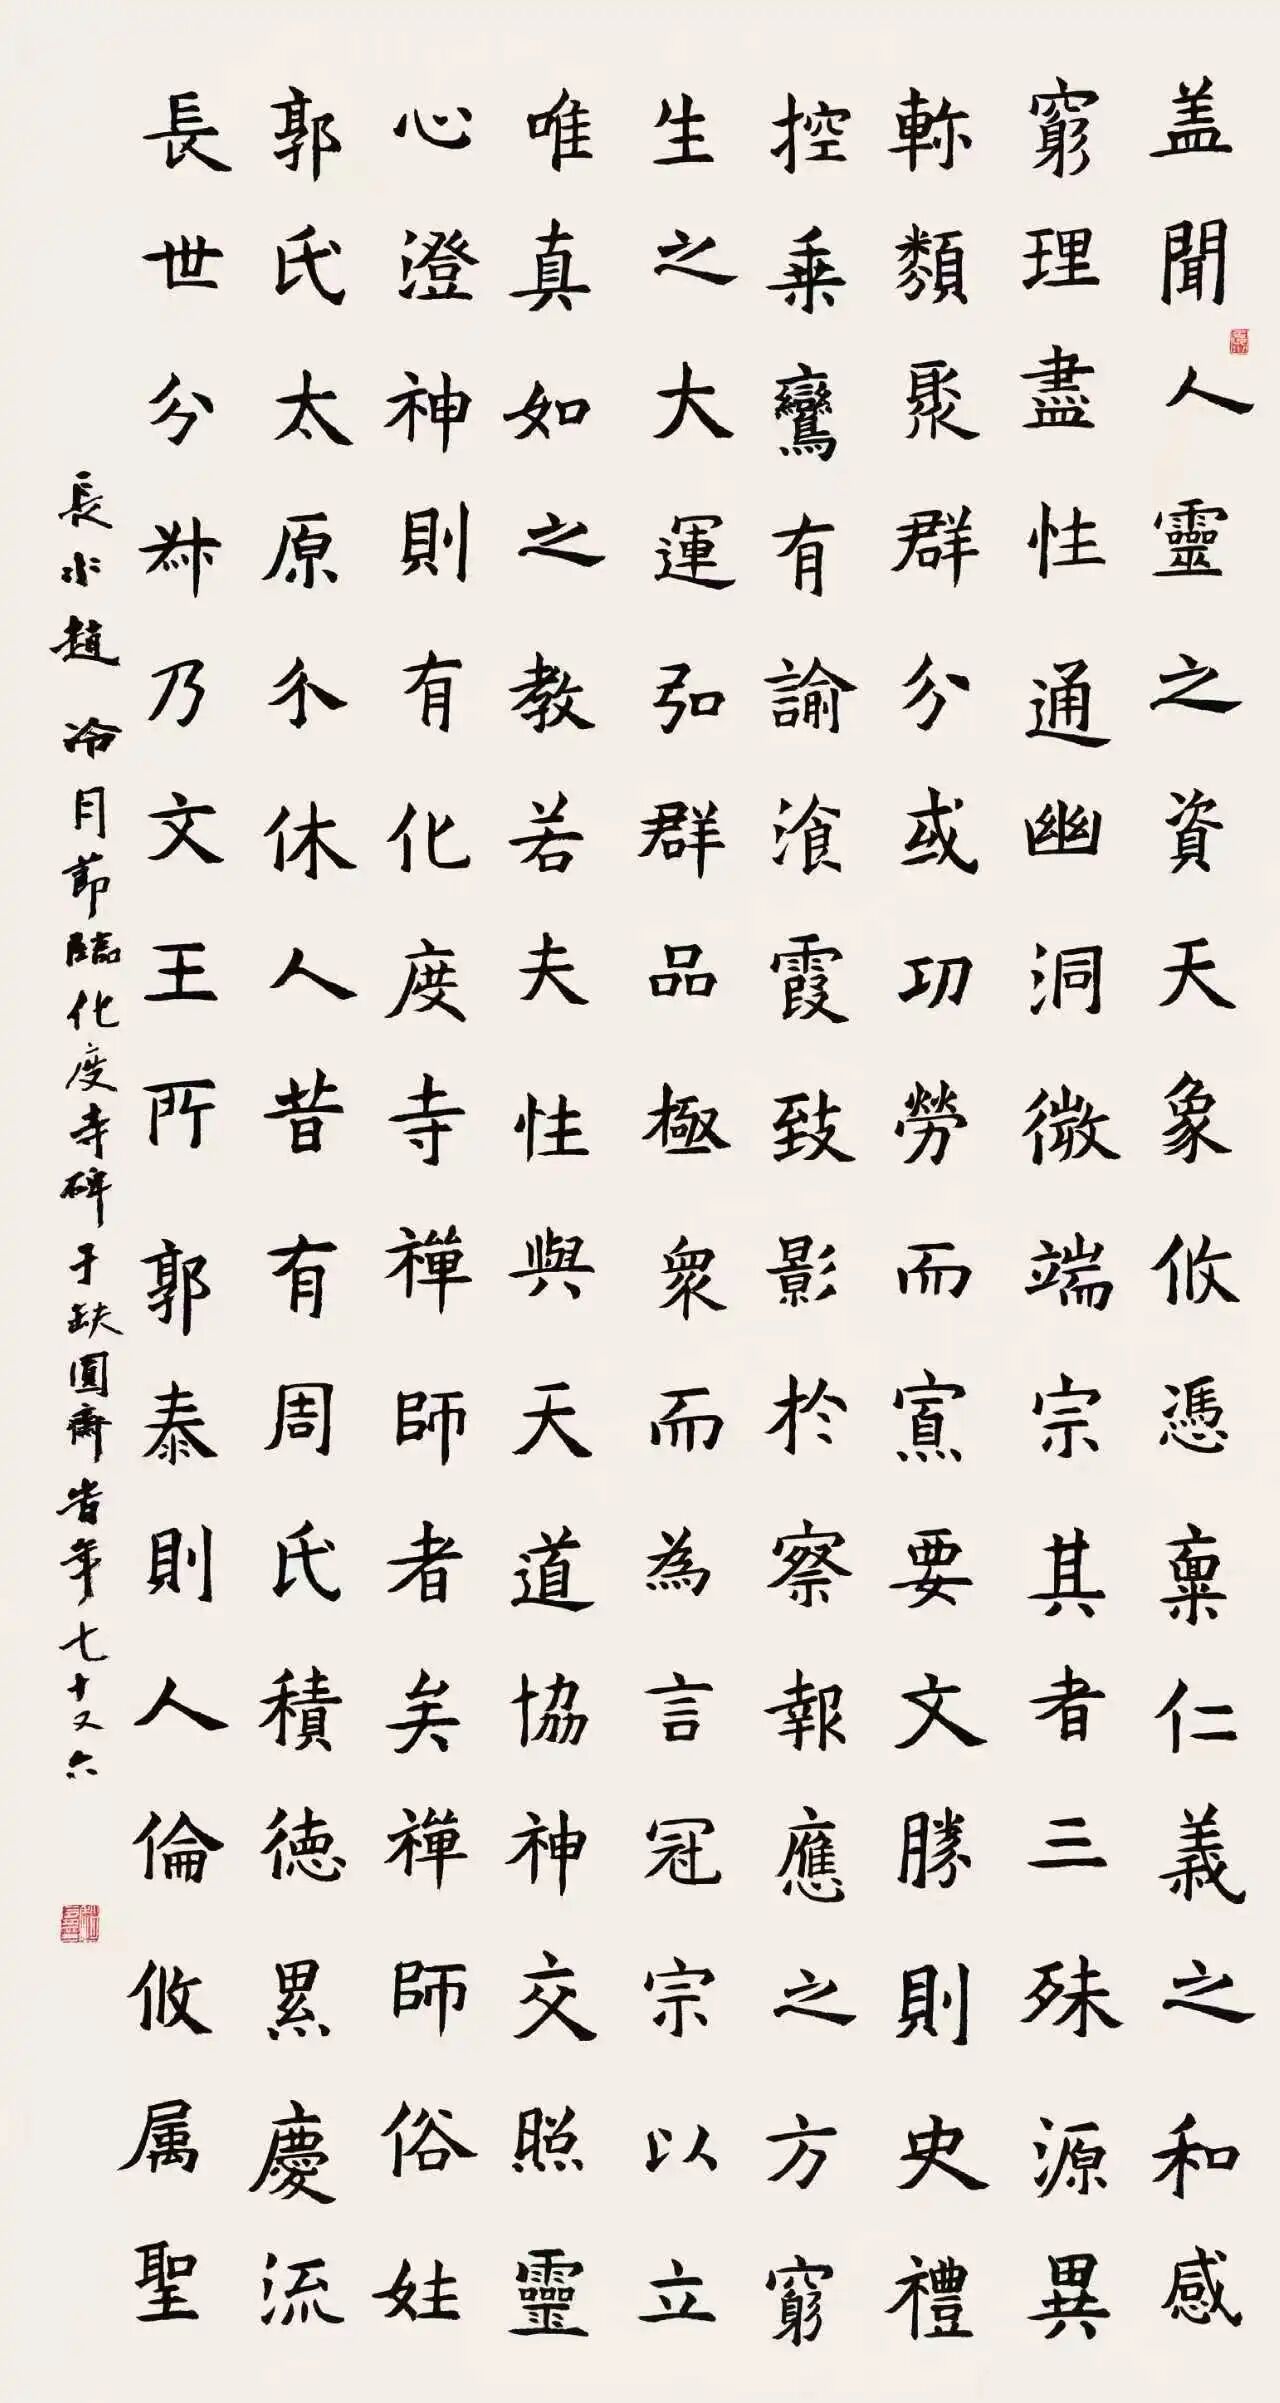 盖聞人靈之資天象攸憑稟仁義之和感
窮理盡性通幽洞微端宗其者三殊源異
軫類聚群分或功勞而寡要文勝則史禮
控乗鸞有諭飡霞致影於察報應之方窮
生之大運弘群品極衆而為言冠宗以立
唯真如之教若夫性與天道協神交照靈
心澄神則有化度寺禪師者矣禪師俗姓
郭氏太原介休人昔有周氏積德累慶流
長世分茅乃文王所郭泰則人倫攸属聖
長水趙冷月節臨化度寺碑于缺圓齋省年七十又六